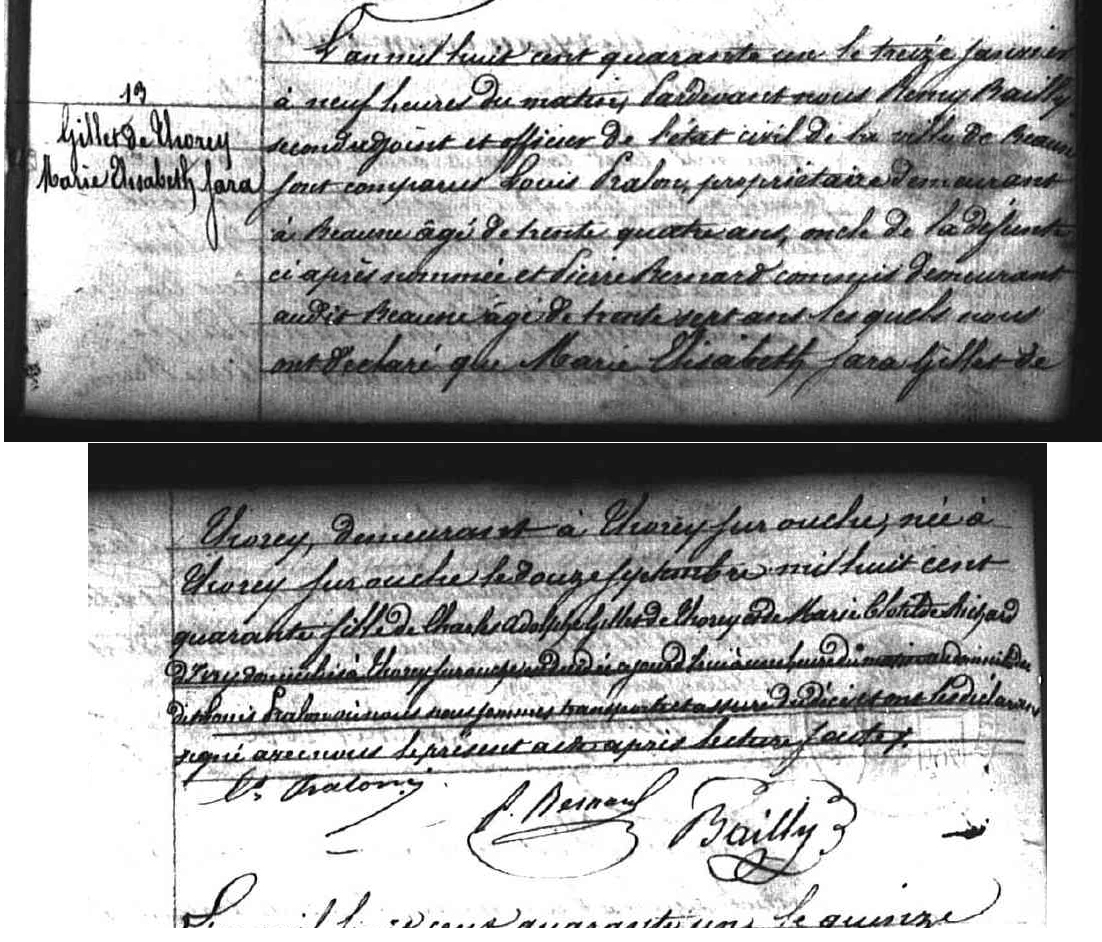 L'an mil huit cent quarante un le treize Janvier
à neuf heures du matin, Pardevant nous Remy Bailly
second adjoint et officier de l'état civil de la ville de Beaune
sont comparus Louis Pralon, propriétaire demeurant
à Beaune âgé de trente quatre ans, oncle de la défunte
ci après nommée et Pierre Bernard commis demeurant
audit Beaune âgé de trente sept ans les quels nous
ont déclaré que Marie Elisabeth Sara Gillet de
13
Gillet de Thorey
Marie Elisabeth Sara
Thorey, demeurant à Thorey sur ouche, née à
Thorey sur ouche le douze septembre mil huit cent
quarante fille de Charles Adolphe Gillet de Thorey et de Marie Clotilde Richard
d'Ivry domiciliés à Thorey sur ouche est décédée ce jourd'hui à une heure du matin au domicile du
dit Louis Pralon où nous nous sommes transporté et assuré du décès et ont les déclarans
signé avec nous le présent acte après lecture faite.
Ls Pralon
P. Bernard
Bailly
L'an mil huit cent quarante un le quinze